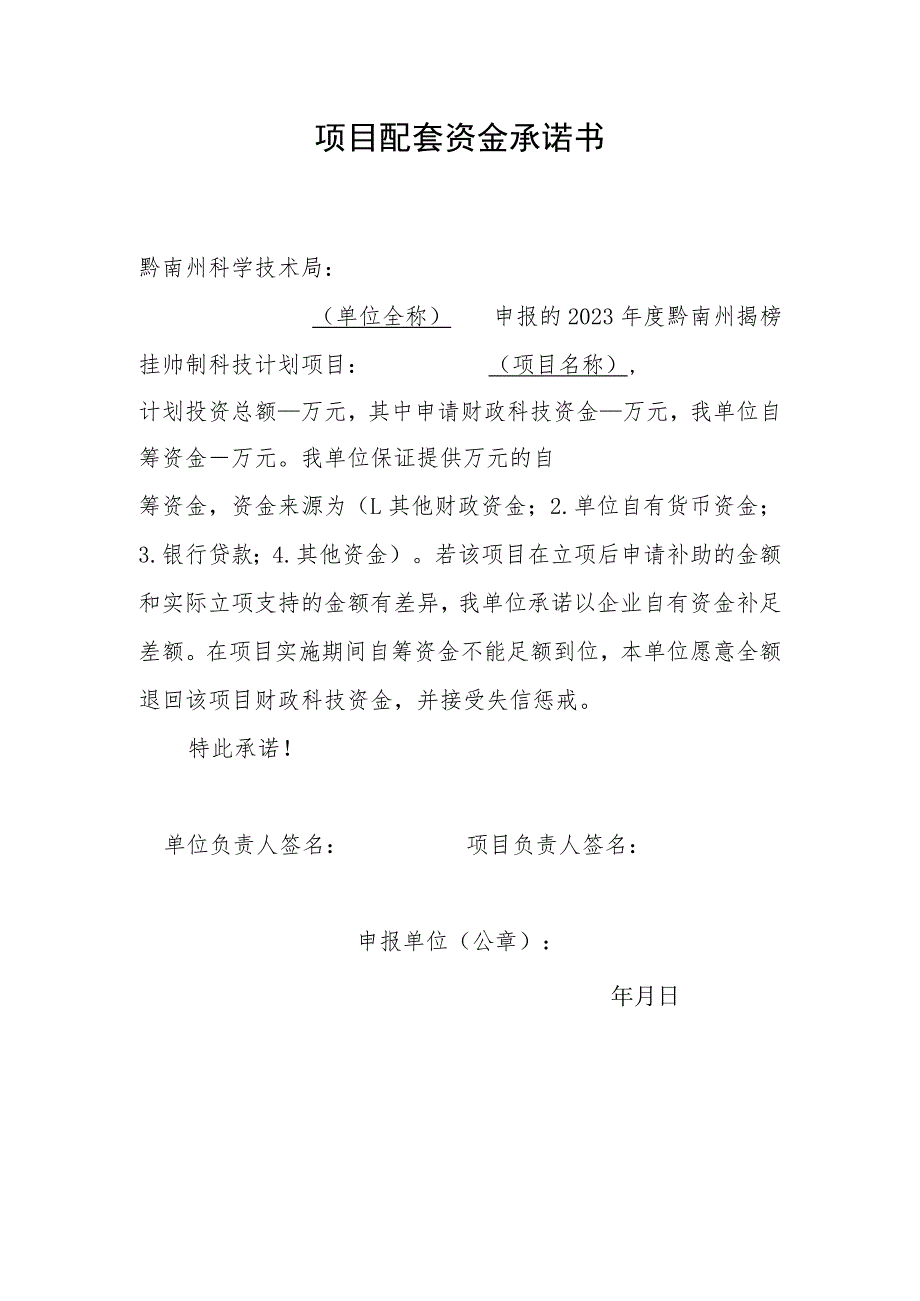 项目配套资金承诺书
黔南州科学技术局：
（单位全称） 申报的 2023 年度黔南州揭榜
挂帅制科技计划项目： （项目名称），
计划投资总额—万元，其中申请财政科技资金—万元，我单位自
筹资金－万元。我单位保证提供万元的自
筹资金，资金来源为（L 其他财政资金；2.单位自有货币资金；
3.银行贷款；4.其他资金）。若该项目在立项后申请补助的金额
和实际立项支持的金额有差异，我单位承诺以企业自有资金补足
差额。在项目实施期间自筹资金不能足额到位，本单位愿意全额
退回该项目财政科技资金，并接受失信惩戒。
特此承诺！
单位负责人签名： 项目负责人签名：
申报单位（公章）：
年月日